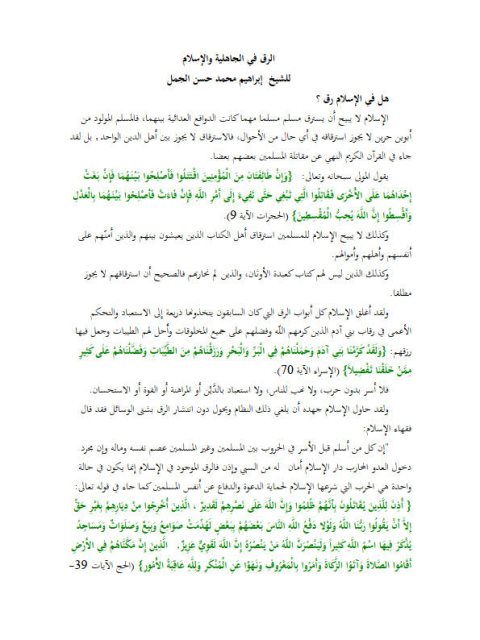 الرق في الجاهلية والإسلام
للشيخ إبراهيم محمد حسن الجمل
هل في الإسلام رق ؟
الإسلام لا يبيح أن يسترق مسلم مسلما مهما كانت الدوافع العدائية بينهما، فالمسلم المولود من
أبوين حرين لا يجوز استرقاقه في أي حال من الأحوال، فالاسترقاق لا يجوز بين أهل الدين الواحد, بل لقد
جاء في القرآن الكريم النهي عن مقاتلة المسلمين بعضهم بعضا.
يقول المولى سبحانه وتعالى: {وَإِنَّ طَائِفَتَانِ مِنَ الْمُؤْمِنِينَ اقْتَتَلُوا فَأَصْلِحُوا بَيْنَهُمَا فَإِنْ بَغَتْ
إِحْدَاهُمَا عَلَى الْأُخْرَى فَقَاتِلُوا الَّتِي تَبْغِي حَتَّى تَفِيءَ إِلَى أَمْرِ اللَّهِ فَإِنْ فَاءَتْ فَأَصْلِحُوا بَيْنَهُمَا بِالْعَدْلِ
وَأَقْسِطُوا إِنَّ اللَّهَ يُحِبُّ الْمُقْسِطِينَ} (الحجرات الآية 9).
وكذلك لا يبيح الإسلام للمسلمين استرقاق أهل الكتاب الذين يعيشون بينهم والذين أمنّهم على
أنفسهم وأهلهم وأموالهم.
وكذلك الذين ليس لهم كتاب كعبدة الأوثان، والذين لم نحاربهم فالصحيح أن استرقاقهم لا يجوز
مطلقا.
ولقد أغلق الإسلام كل أبواب الرق التي كان السابقون يتخذونها ذريعة إلى الاستعباد والتحكم
الأعمى في رقاب بني آدم الذين كرمهم اللَّه وفضلهم على جميع المخلوقات وأحل لهم الطيبات وجعل فيها
رزقهم: {وَلَقَدْ كَرَّمْنَا بَنِي آدَمَ وَحَمَلْنَاهُمْ فِي الْبَرِّ وَالْبَحْرِ وَرَزَقْنَاهُمْ مِنَ الطَّيِّبَاتِ وَفَضَّلْنَاهُمْ عَلَى كَثِيرٍ
مِمَّنْ خَلَقْنَا تَفْضِيلاً} (الإسراء الآية 70).
فلا أسر بدون حرب، ولا نهب للناس، ولا استعباد بالدَّيْن أو المراهنة أو القوة أو الاستحسان.
ولقد حاول الإسلام جهده أن يلغي ذلك النظام ويحول دون انتشار الرق بشتى الوسائل فقد قال
فقهاء الإسلام:
"إن كل من أسلم قبل الأسر في الحروب بين المسلمين وغير المسلمين عصم نفسه وماله وإن مجرد
دخول العدو المحارب دار الإسلام أمان له من السبي وإذن فالرق الموجود في الإسلام إنما يكون في حالة
واحدة هي الحرب التي شرعها الإسلام لحماية الدعوة والدفاع عن أنفس المسلمين كما جاء في قوله تعالى:
{ أُذِنَ لِلَّذِينَ يُقَاتَلُونَ بِأَنَّهُمْ ظُلِمُوا وَإِنَّ اللَّهَ عَلَى نَصْرِهِمْ لَقَدِيرٌ ، الَّذِينَ أُخْرِجُوا مِنْ دِيَارِهِمْ بِغَيْرِ حَقٍّ
إِلاَّ أَنْ يَقُولُوا رَبُّنَا اللَّهُ وَلَوْلا دَفْعُ اللَّهِ النَّاسَ بَعْضَهُمْ بِبَعْضٍ لَهُدِّمَتْ صَوَامِعُ وَبِيَعٌ وَصَلَوَاتٌ وَمَسَاجِدُ
يُذْكَرُ فِيهَا اسْمُ اللَّهِ كَثِيراً وَلَيَنْصُرَنَّ اللَّهُ مَنْ يَنْصُرُهُ إِنَّ اللَّهَ لَقَوِيٌّ عَزِيزٌ. الَّذِينَ إِنْ مَكَّنَّاهُمْ فِي الأَرْضِ
أَقَامُوا الصَّلاةَ وَآتَوُا الزَّكَاةَ وَأَمَرُوا بِالْمَعْرُوفِ وَنَهَوْا عَنِ الْمُنْكَرِ وَلِلَّهِ عَاقِبَةُ الأُمُورِ} (الحج الآيات 39-